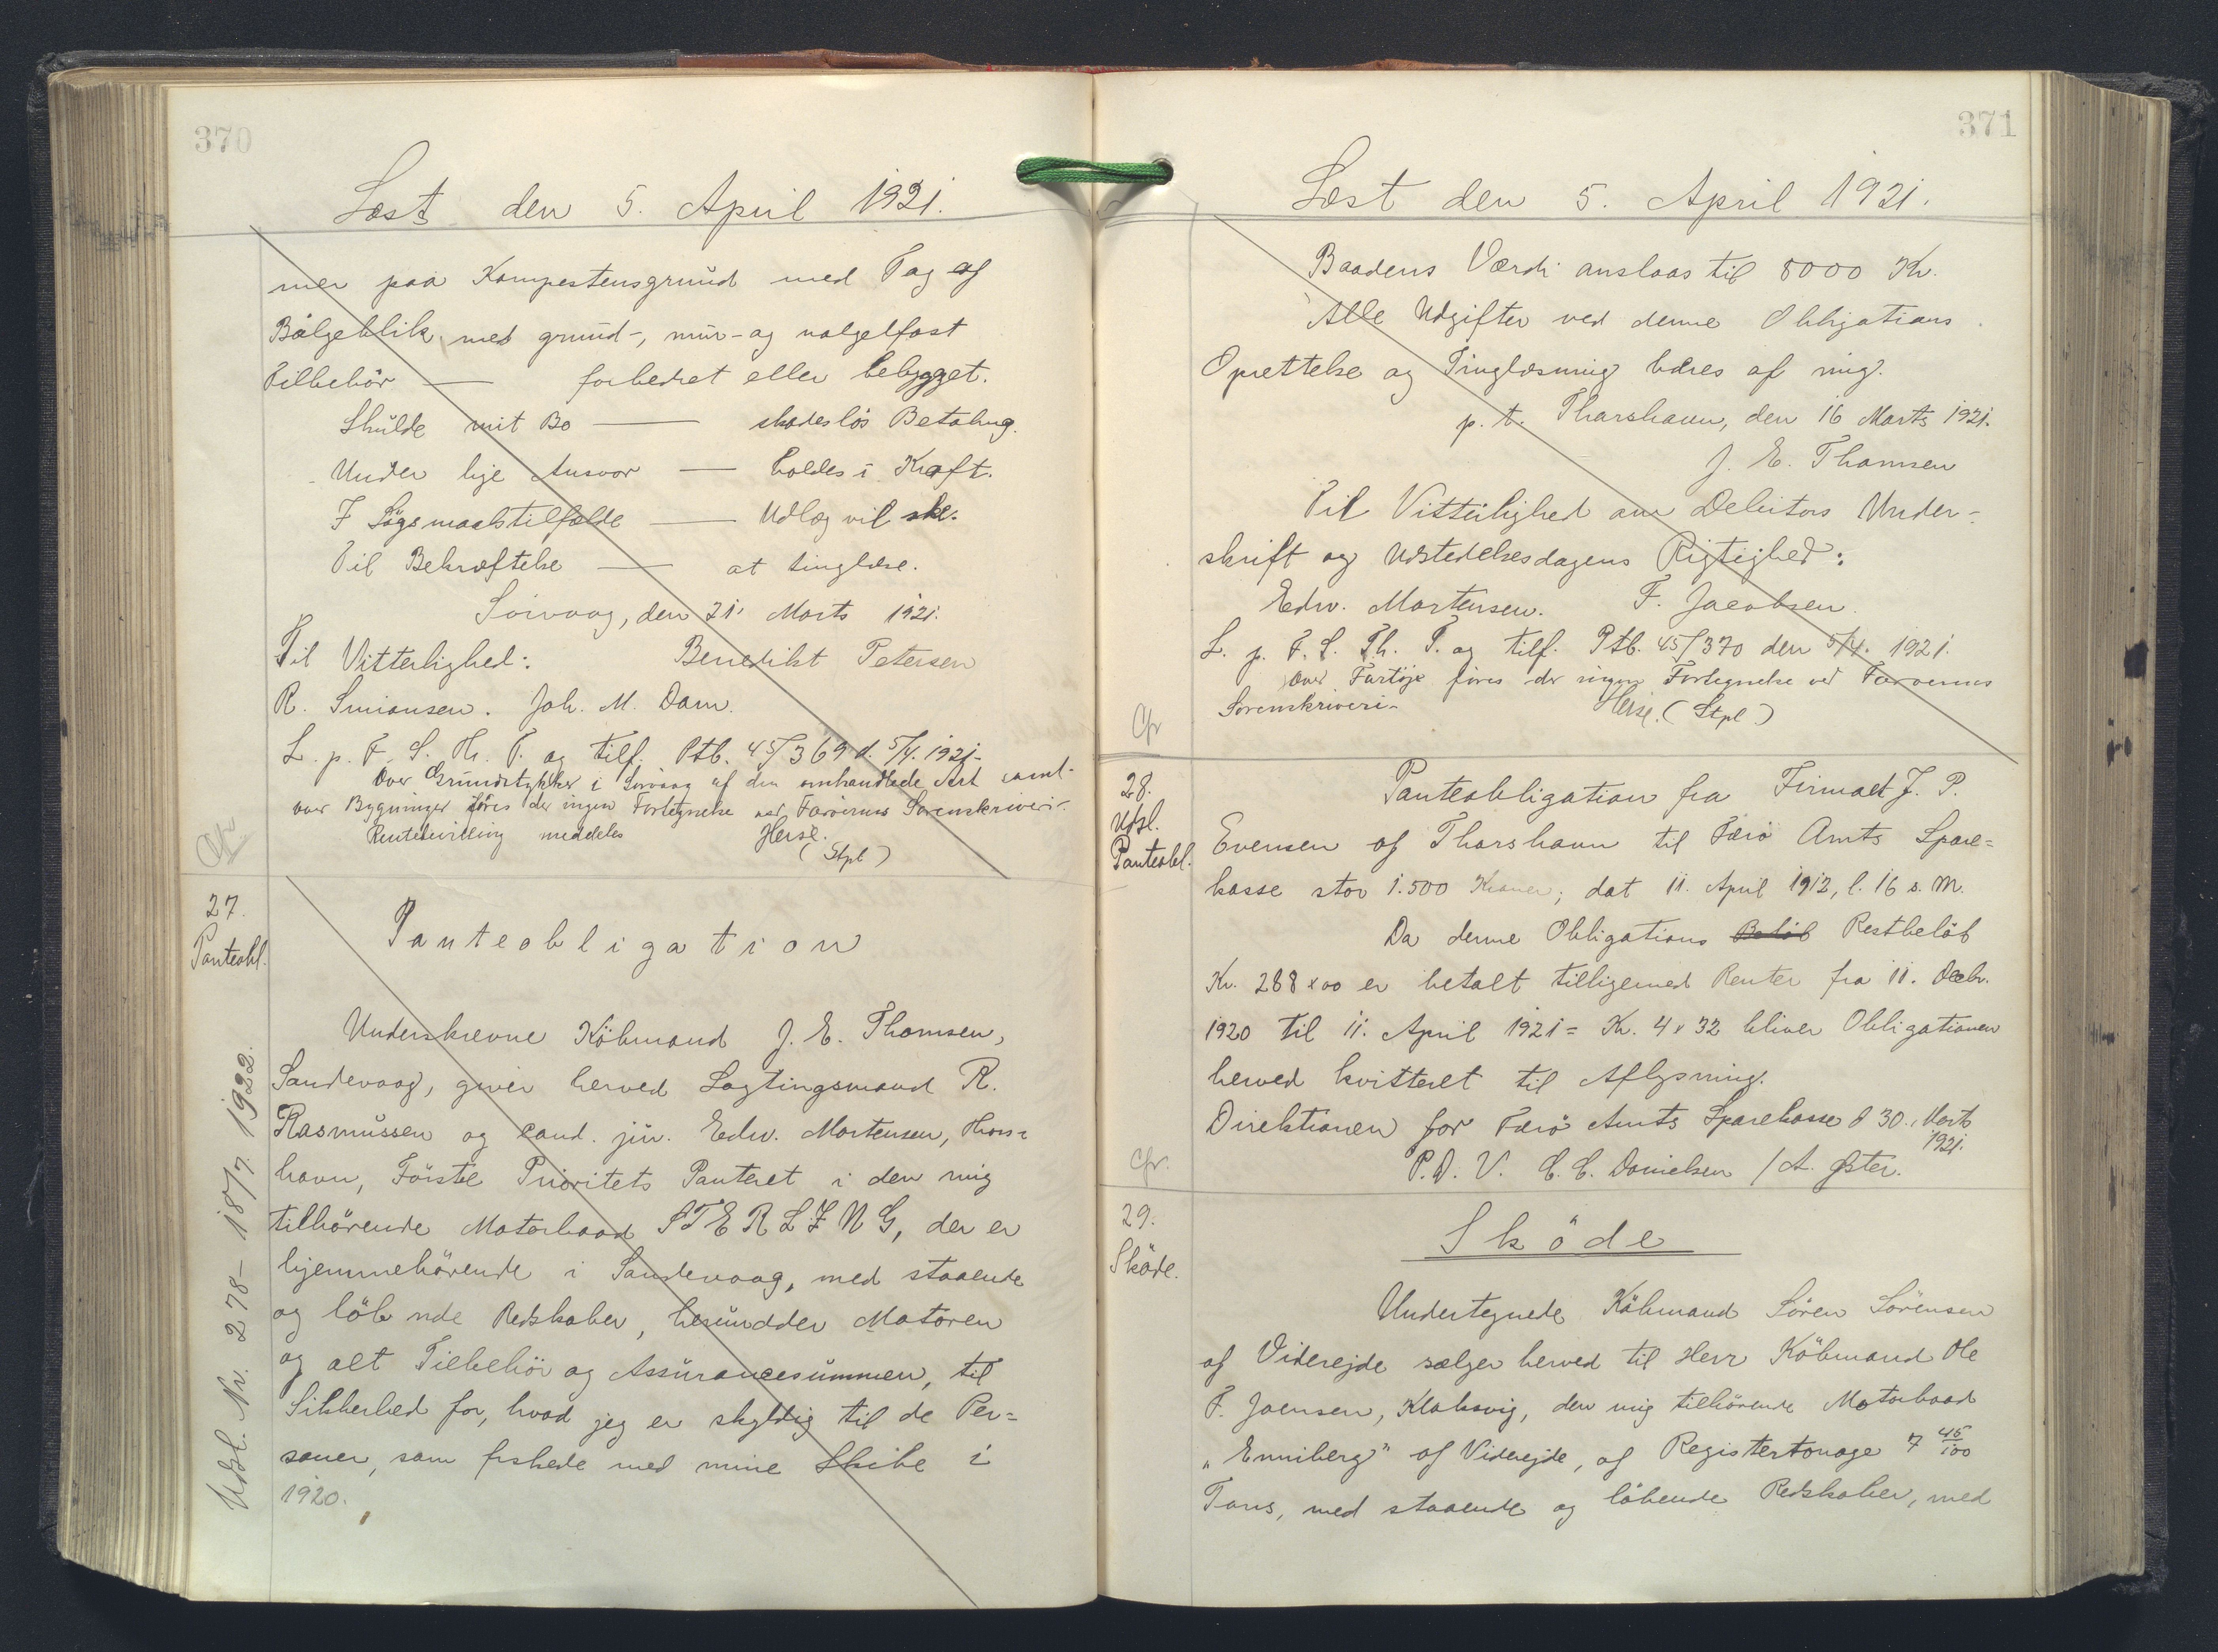 370
Læst den 5. April 1921.
mer paa Kampestensgrund med Tag af
Bølgeblik med grund-, mur- og nagelfast
Tilbehör — forbedret eller bebygget.
Skulde mit Bo — skadeslös Betaling.
Under lige Ansvar — holdes i Kraft.
I Sögsmaalstilfælde — Udlæg vil ske.
Til Bekræftelse — at tinglæse.
Sörvaag, den 21' Marts 1921.
Til Vitterlighed: Benedikt Petersen
R. Simonsen. Joh. M. Dam.
L. p. F. S. Th. T. og tilf. Ptb. 45/369 d. 5/4. 1921-
Over Grundstykker i Sörvaag af den omhandlede Art samt
over Bygninger föres der ingen Fortegnelse ved Færöernes Sorenskriveri-
Rentebevilling meddeles Heise.
(Stpl)
Cfr.
27.
Panteobl.
Panteobligation
Underskrevne Köbmand J. E. Thomsen,
Sandevaag, giver herved Lagtingsmand R.
Rasmussen og cand. jur. Edw. Mortensen, Thors-
havn, Förste Prioritets Panteret i den mig
tilhörende Motorbaad STERLING, der er
hjemmehörende i Sandevaag, med staaende
og löb nde Redskaber, herundder Motoren
og alt Tilbehör og Assurancesummen, til
Sikkerhed for, hvad jeg er skyldig til de Per-
soner, som fiskede med mine Skibe i
1920.
Udsl. Nr. 278 - 18/7. 1922.
371
Læst den 5. April 1921.
Baadens Værdi anslaas til 8000 Kr.
Alle Udgifter ved denne Obligations
Oprettelse og Tinglæsning bæres af mig.
p. t. Thorshavn, den 16 Marts 1921.
J. E. Thomsen
Til Vitterlighed om Debitors Under-
skrift og Udstedelsesdagens Rigtighed:
Edw. Mortensen. F. Jacobsen.
L. p. F. S. Th. T. og tilf. Ptb. 45/370 den 5/4. 1921.
Over Fartöje föres der ingen Fortegnelse ved Færöernes
Sorenskriveri- Heise. (Stpl)
Cfr
28.
Udsl.
Panteobl.
Panteobligation fra Firmaet J. P.
Evensen af Thorshavn til Færö Amts Spare-
kasse stor 1.500 Kroner; dat 11. April 1912, l. 16 s. M.
Da denne Obligations Belöb Restbelöb
Kr. 288 x 00 er betalt tilligemed Renter fra 11. Decbr.
1920 til 11. April 1921 = Kr. 4 x 32 bliver Obligationen
herved kvitteret til Aflysning.
Direktionen for Færö Amts Sparekasse d 30. Marts
1921.
P. D. V. C. C. Danielsen / A. Øster.
Cfr.
29.
Sköde.
Sköde
Undertegnede Köbmand Sören Sörensen
af Viderejde sælger herved til Herr Köbmand Ole
F. Joensen, Klaksvig, den mig tilhörende Motorbaad
„Enniberg" af Viderejde, af Registertonage 7 46/100
Tons, med staaende og löbende Redskaber, med